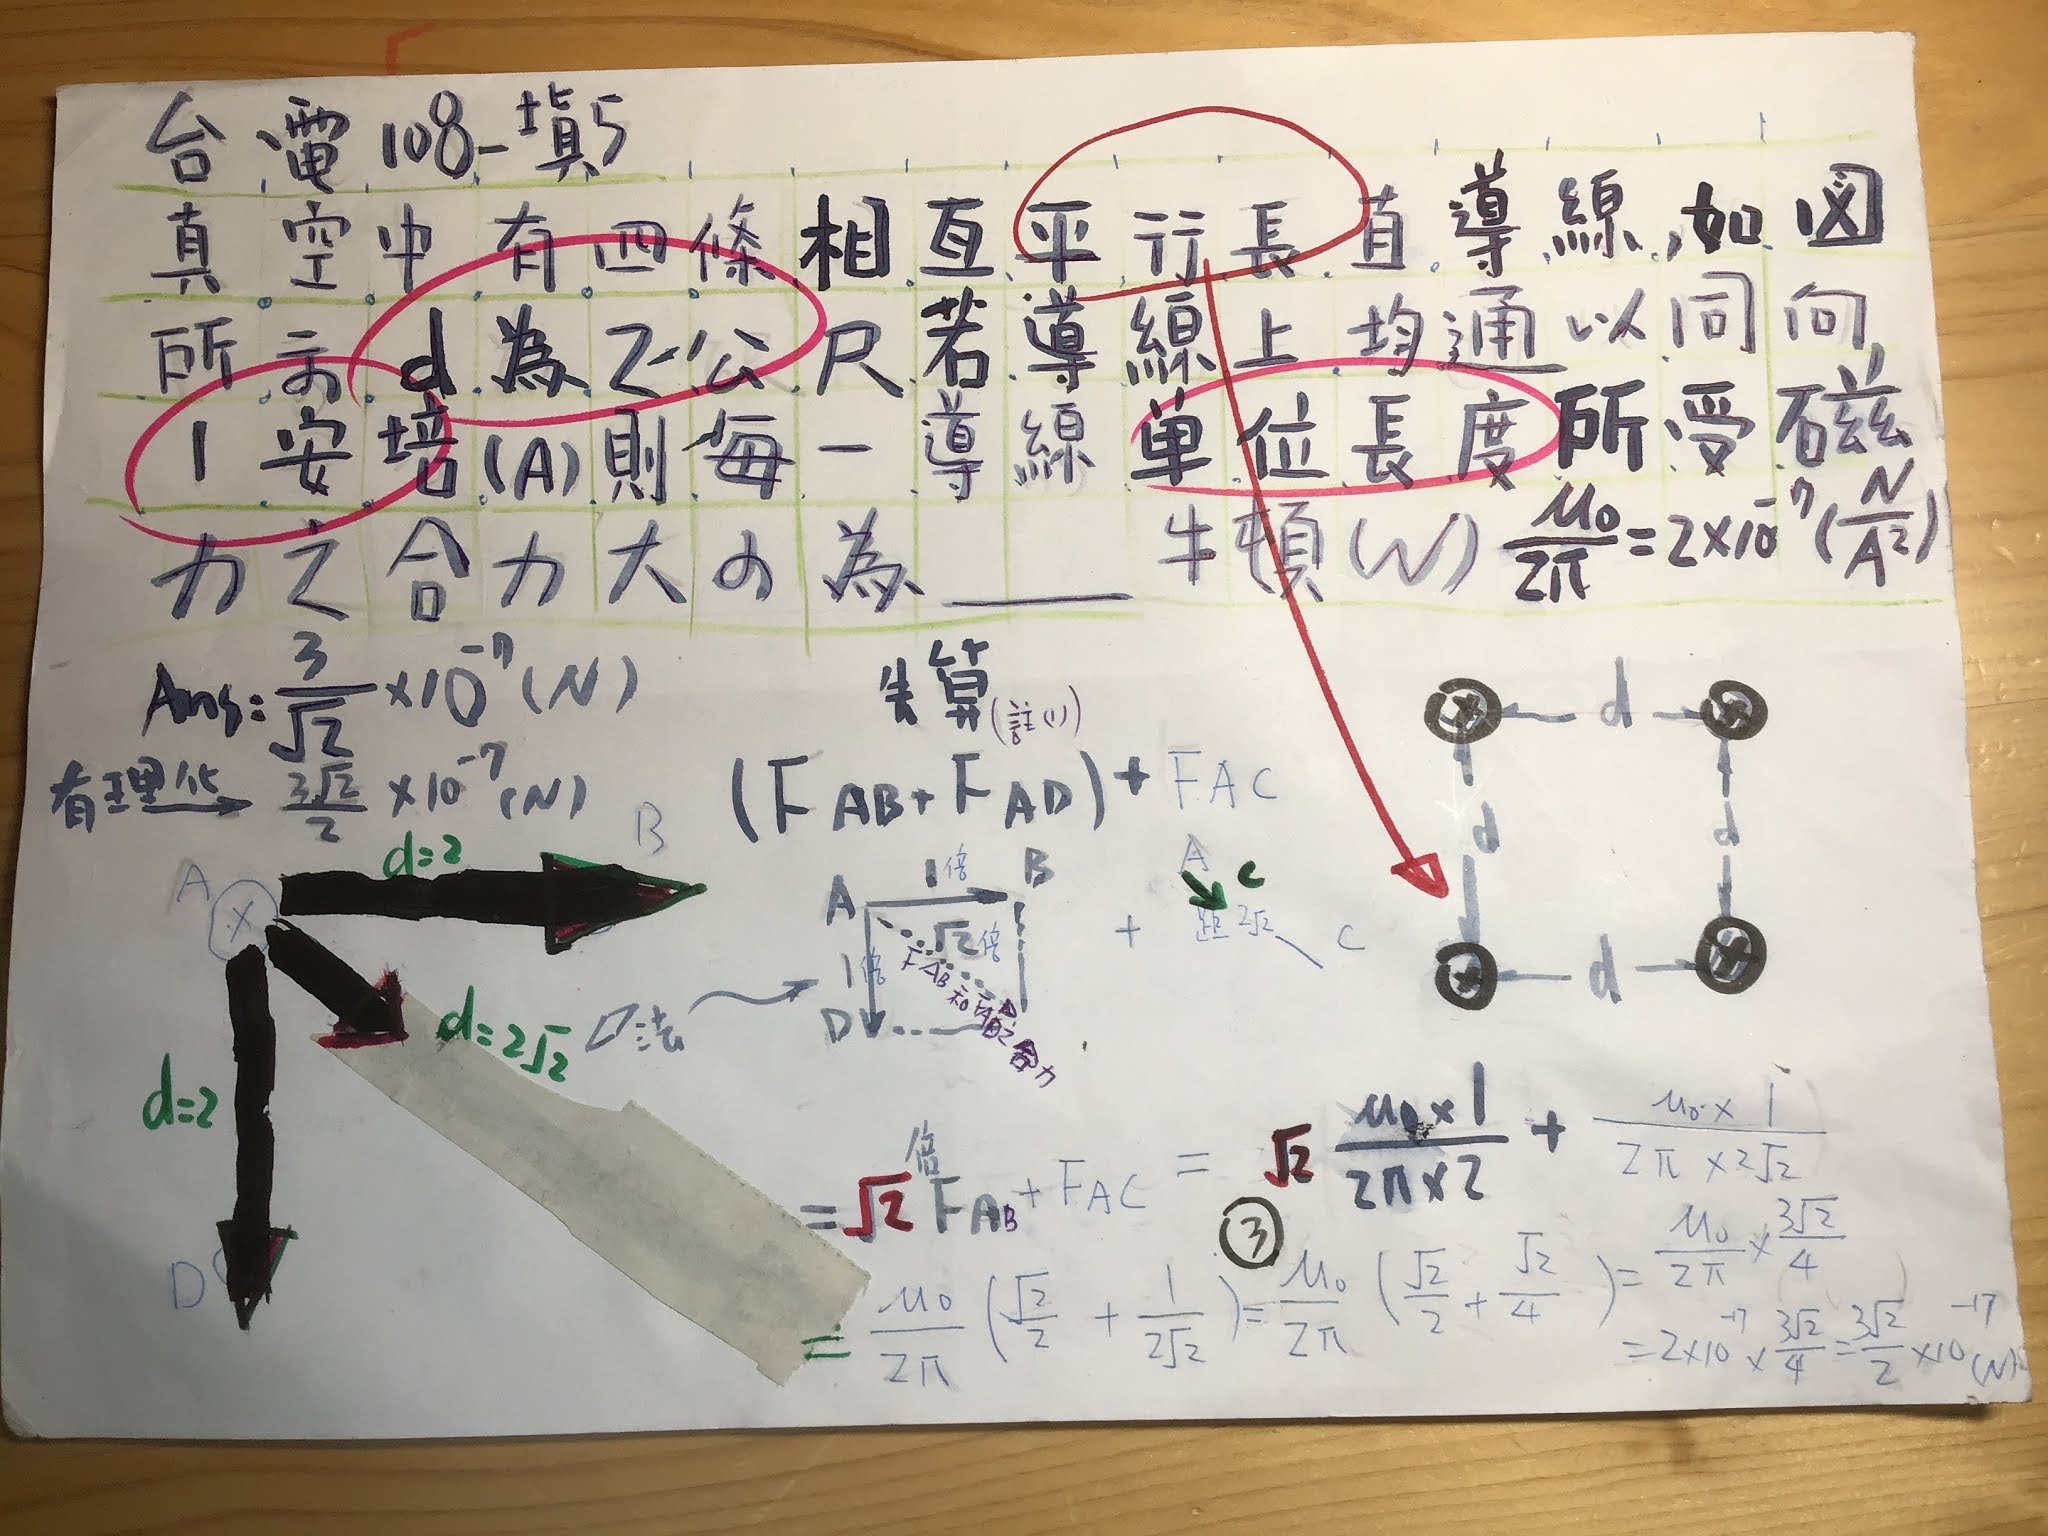 台電108-填5
真空中有四條相互平行長直導線,如図
所示d為2公尺若導線上均通以同向,
1安培(A)則每一導線單位長度所受磁
力之合力大小為____牛頓(N) μ₀/2π=2×10⁻⁷(N/A²)
Ans: 3/√2 ×10⁻⁷(N)
有理化→ 3√2/2 ×10⁻⁷(N)
先算(註(1))
(F AB+F AD)+F AC
d
d
d
d
A
d=2
B
d=2√2
d=2
D
▱法
A 1倍 B
1倍
√2倍
FAB和FAD之合力
D
+
A
C
距2√2
C
=√2倍 FAB+FAC = √2 μ₀×1/2π×2 + μ₀×1/2π×2√2
③
= μ₀/2π (√2/2 + 1/2√2)= μ₀/2π (√2/2 + √2/4)= μ₀/2π × 3√2/4
=2×10⁻⁷× 3√2/4 = 3√2/2 ×10⁻⁷(N)